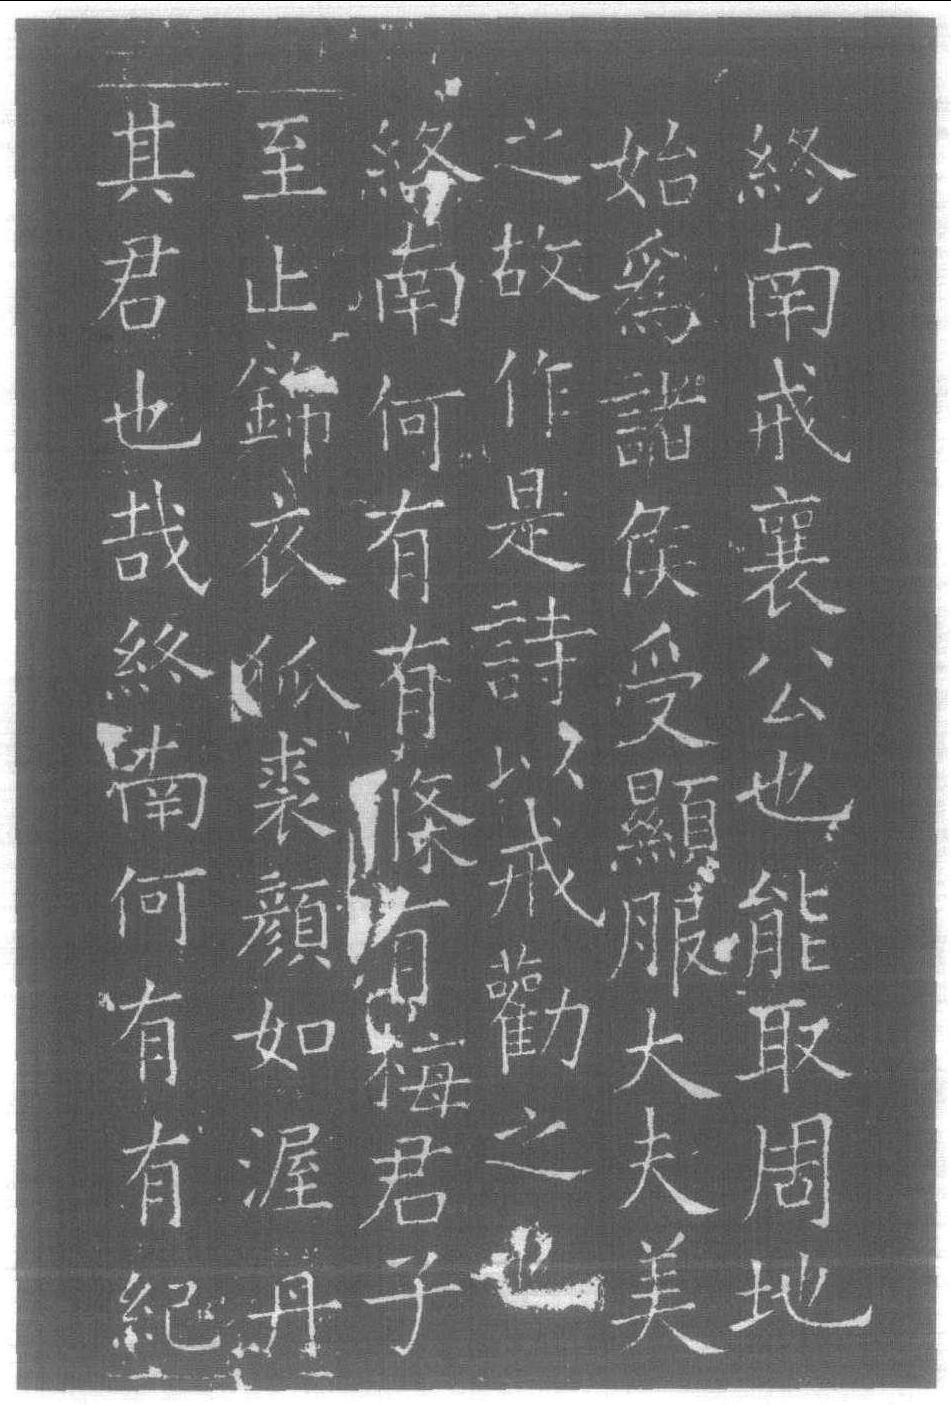 終南戒襄公也能取周地
始爲諸侯受顯服大夫美
之故作是詩以戒勸之也
終南何有有條有梅君子
至止錦衣狐裘顔如渥丹
其君也哉終南何有有紀